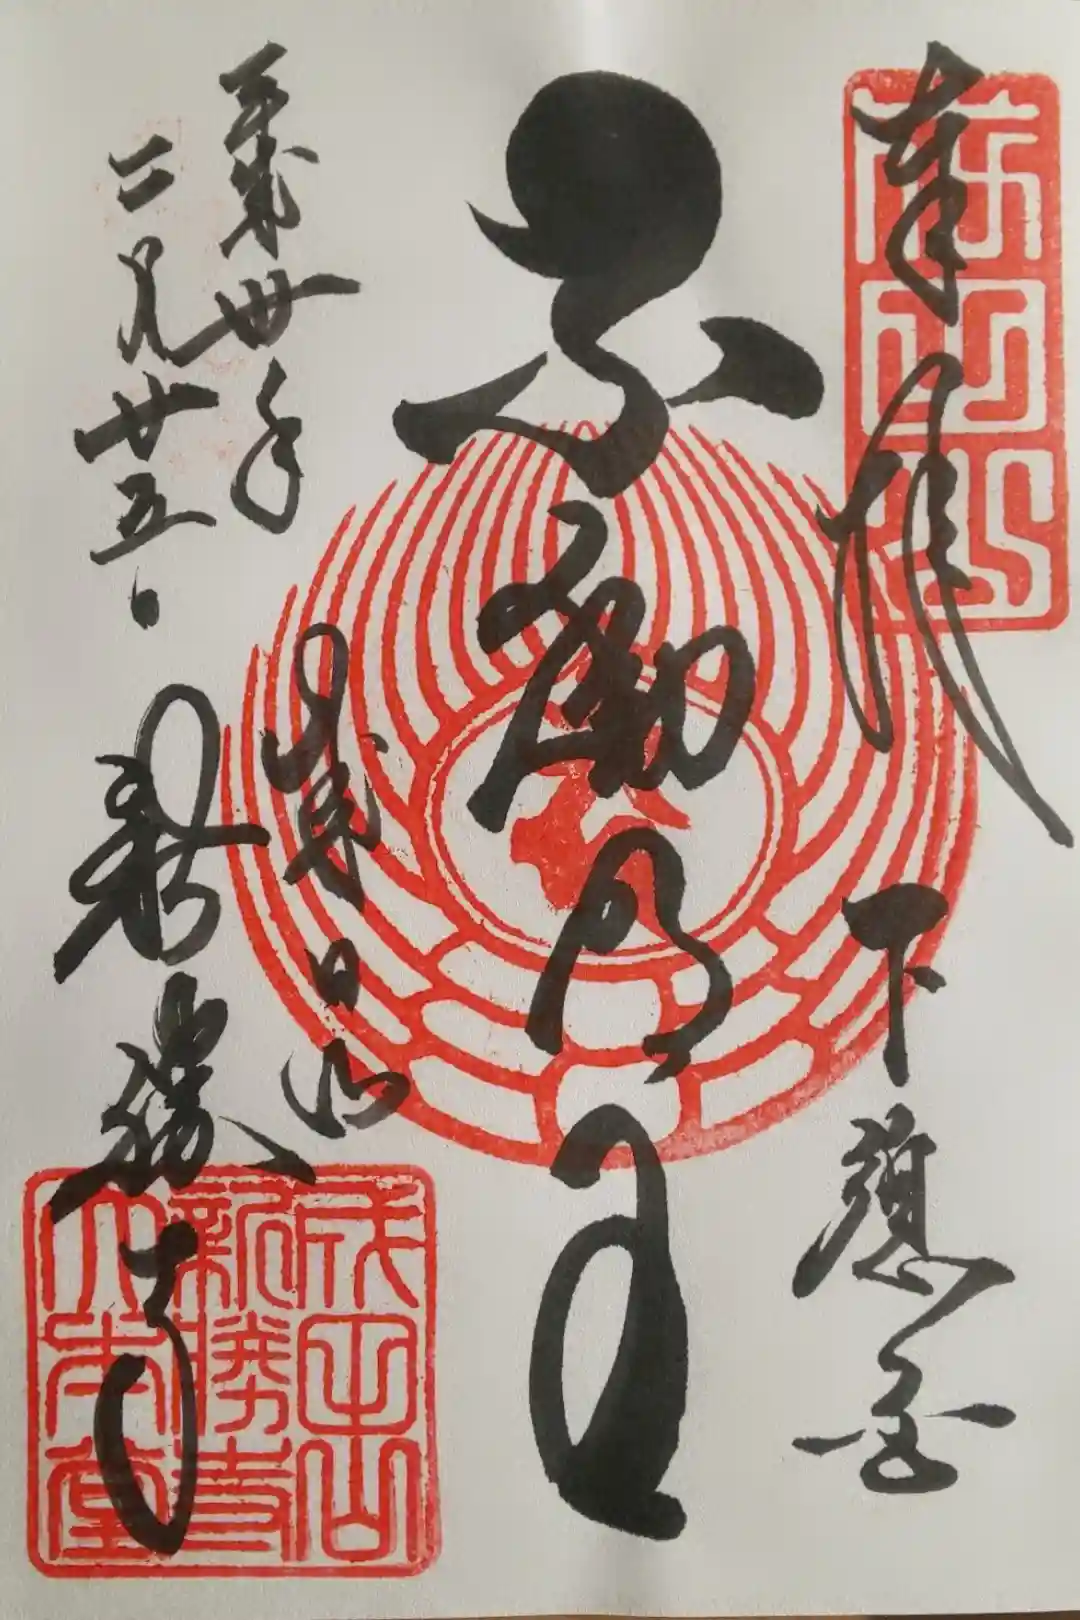 奉拝 下總国
成田山
不動明王
平成卅年
二月廿五日
成田山
新勝寺
成田山
新勝寺
大本堂